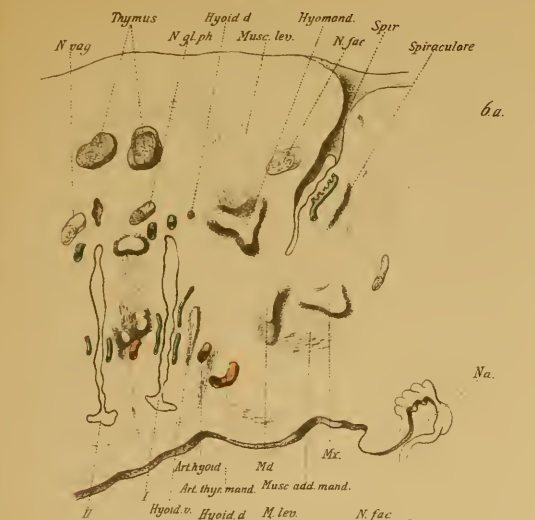 Thymus Hyoid d Hyomand. Spir
N vag N gl.ph Musc. lev. N. fac Spiraculare
6.a.
Na.
Art.hyoid Md Mx.
I Art. thyr. mand. Musc add. mand.
II Hyoid. v. Hyoid. d M. lev. N. fac